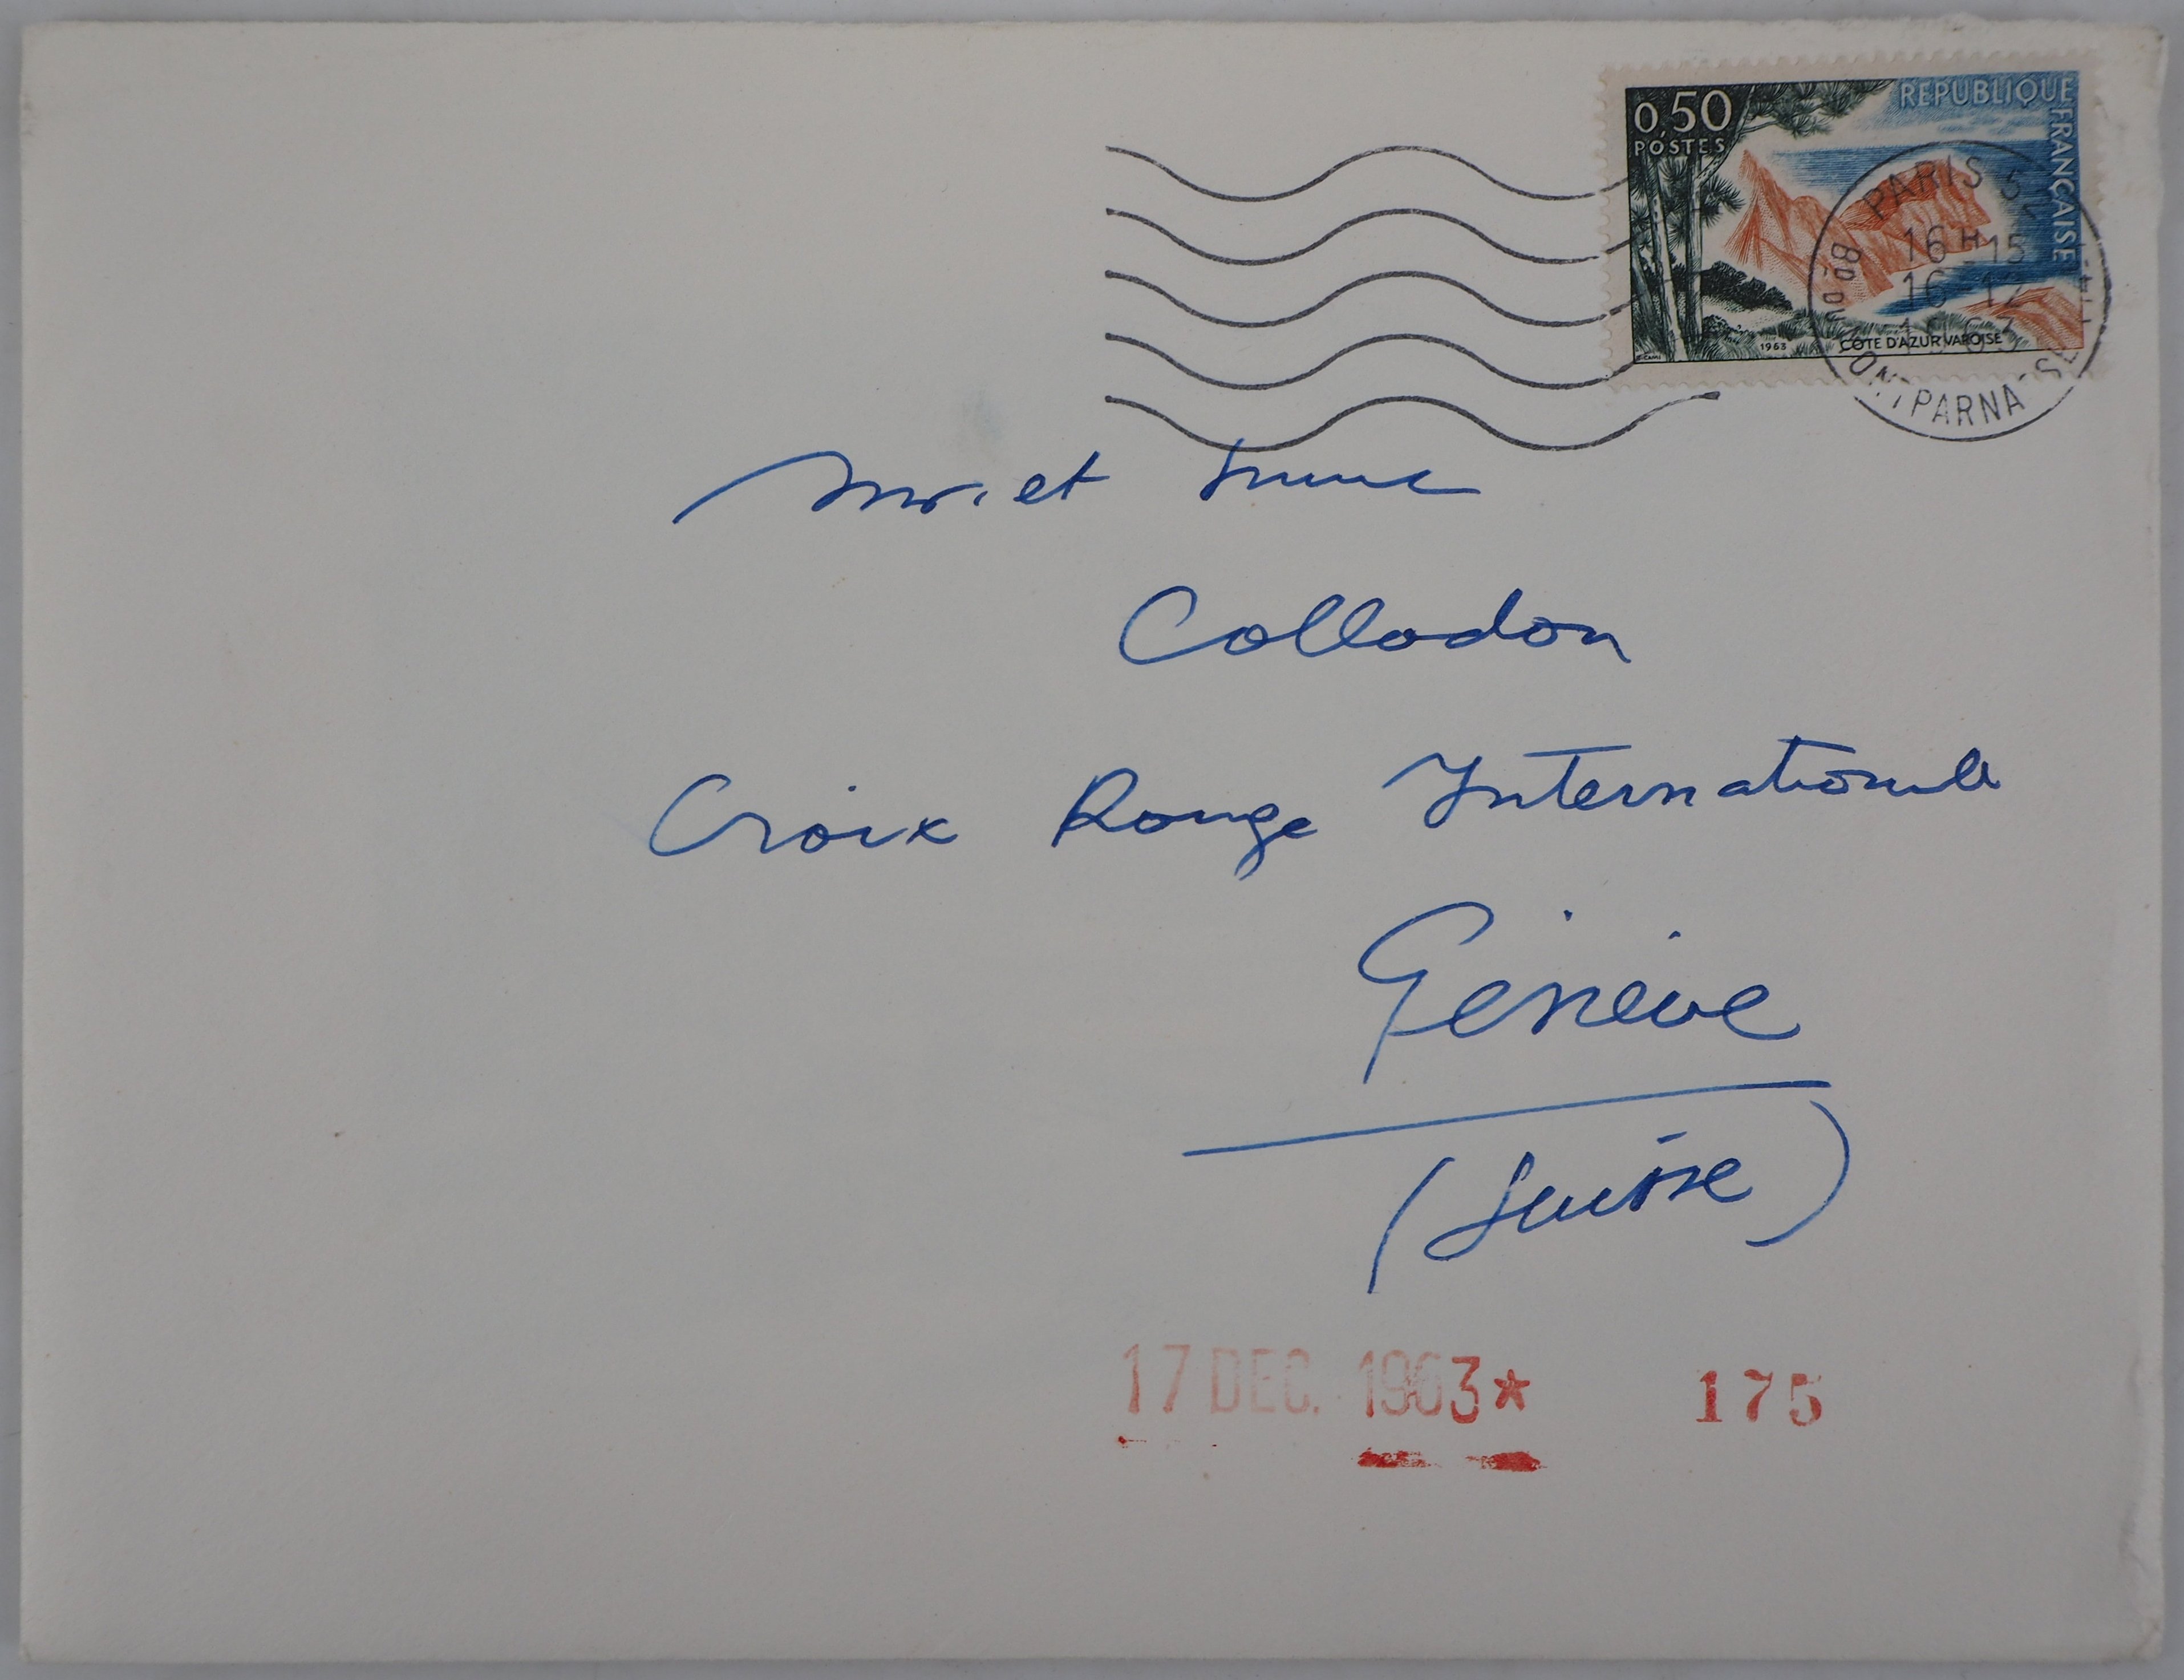 0,50
POSTES
REPUBLIQUE
FRANÇAISE
1963 COTE D'AZUR VAROISE
PARIS
16H15
16-12
Bd DU MONTPARNASSE
Mr. et Mme
Collodon
Croix Rouge Internationale
Genève
(Suisse)
17 DEC. 1963* 175